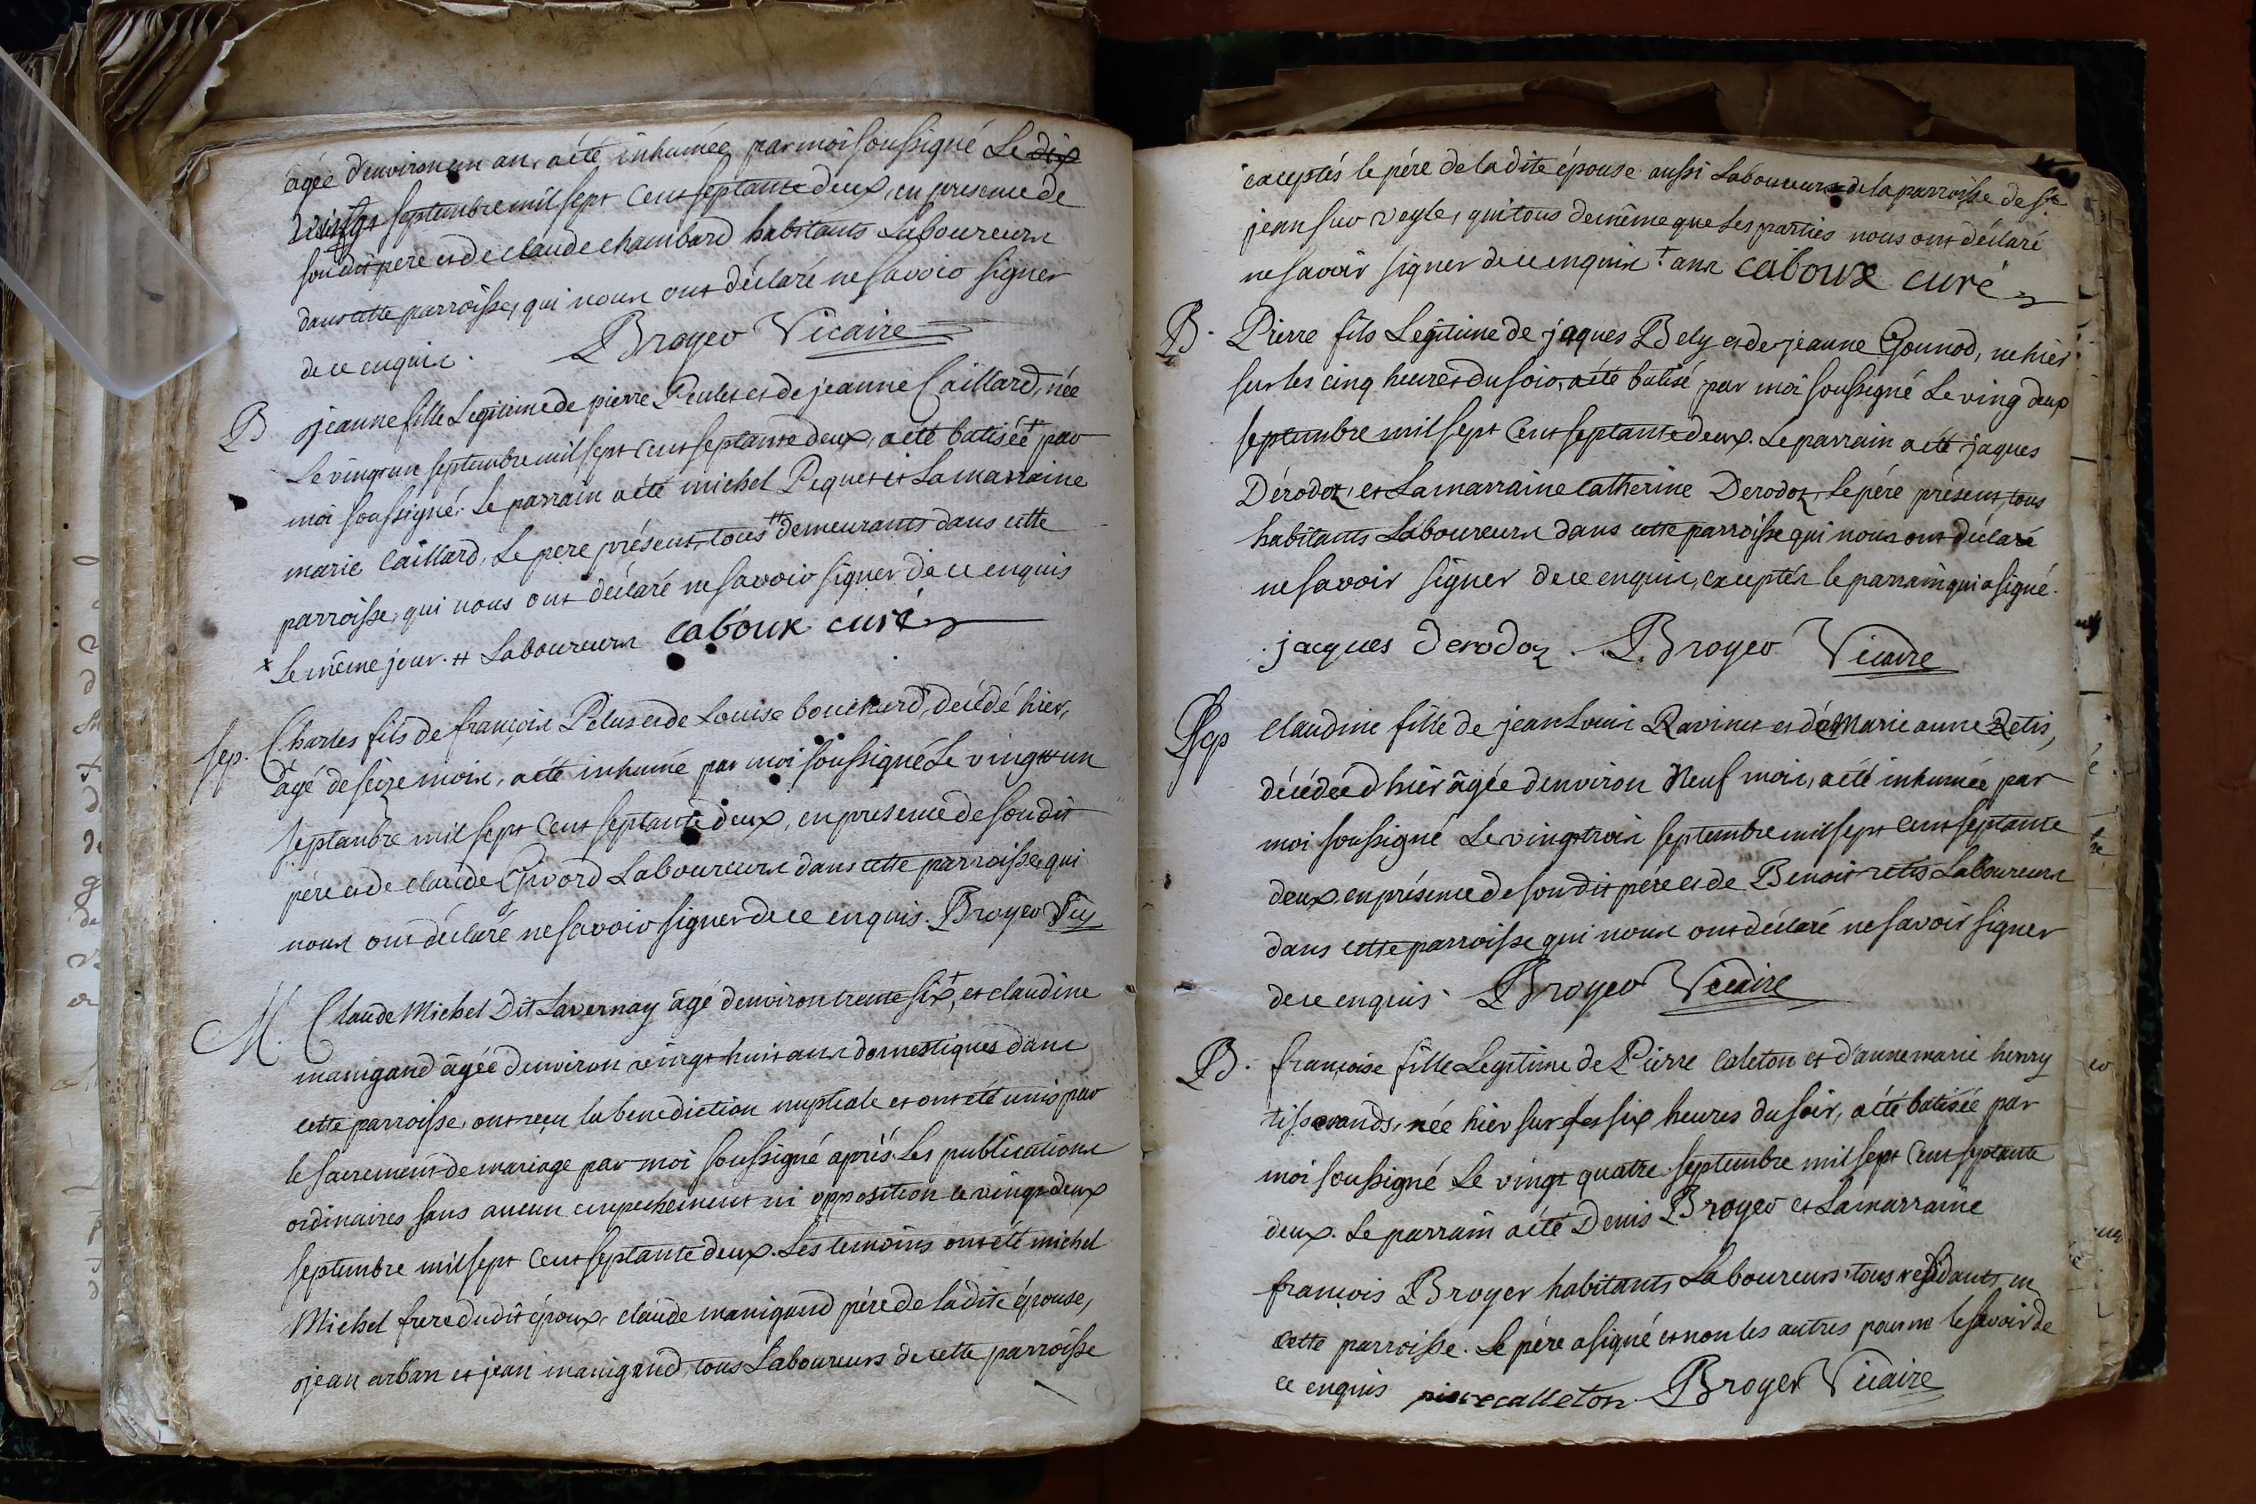 âgée d'environ un an, a été inhumée par moi soussigné Le dix
vingt septembre mil sept cent septante deux, en presence de
son dit pere et de claude chambard habitants Laboureurs
dans cette parroisse, qui nous ont déclaré ne savoir signer
de ce enquis. Broyer Vicaire
B jeanne fille Legitime de pierre Peulet et de jeanne Caillard, née
Le vingt un septembre mil sept cent septante deux, a été batisée + par
moi soussigné. Le parrain a été michel Piquet et La marraine
marie Caillard, Le pere présent, tous # demeurants dans cette
parroisse, qui nous ont déclaré ne savoir signer de ce enquis
+ Le même jour. # Laboureurs caboux curé
sep. Charles fils de françois Pelus et de Louise bouchard, décédé hier,
âgé de seize mois, a été inhumé par moi soussigné Le vingt un
septanbre mil sept cent septante deux, en presence de son dit
pére et de claude Givord Laboureurs dans cette parroisse qui
nous ont déclaré ne savoir signer de ce enquis. Broyer
M. Claude Michel Dit Lavernay âgé d'environ trente six +, et claudine
manigand âgée d'environ vingt huit ans domestiques dans
cette parroisse, ont reçu la benediction nuptiale et ont été unis par
le sacrement de mariage par moi soussigné après Les publications
ordinaires sans aucun empechement ni opposition ce vingt deux
septembre mil sept cent septante deux. Les temoins ont été michel
Michel frere du dit époux, claude manigand pére de ladite épouse,
jean arban et jean manigand, tous Laboureurs de cette parroisse
exceptés le pére de la dite épouse aussi Laboureur de la parroisse de St
jean sur Veyle, qui tous de même que Les parties nous ont déclaré
ne savoir signer de ce enquis + ans caboux curé
B. Pierre fils Legitime de jaques Bely et de jeanne Gounod, né hier
sur les cinq heures du soir, a été batisé par moi soussigné Le ving deux
septembre mil sept cent septante deux. Le parrain a été jaques
Dérodoz, et La marraine Catherine Derodoz, Le pére présent, tous
habitants Laboureurs dans cette parroisse qui nous ont déclaré
ne savoir signer de ce enquis, exceptés le parrain qui a signé.
jacques derodoz. Broyer Vicaire
Sep Claudine fille de jean Louis Ravinet et de Marie anne Retis,
décédée d'hier âgée d'environ Neuf mois, a été inhumée par
moi soussigné Le vingt trois septembre mil sept cent septante
deux, en présence de son dit pére et de Benoit retis Laboureurs
dans cette parroisse qui nous ont déclaré ne savoir signer
de ce enquis. Broyer Vicaire
B. françoise fille Legitime de Pierre Caleton et d'anne marie henry
tisserands, née hier sur les six heures du soir, a été batisée par
moi soussigné Le vingt quatre septembre mil sept cent septante
deux. Le parrain a été Denis Broyer et La marraine
françois Broyer habitants Laboureurs tous residants en
cette parroisse. Le pére a signé et non les autres pour ne le savoir de
ce enquis pierre calleton Broyer Vicaire